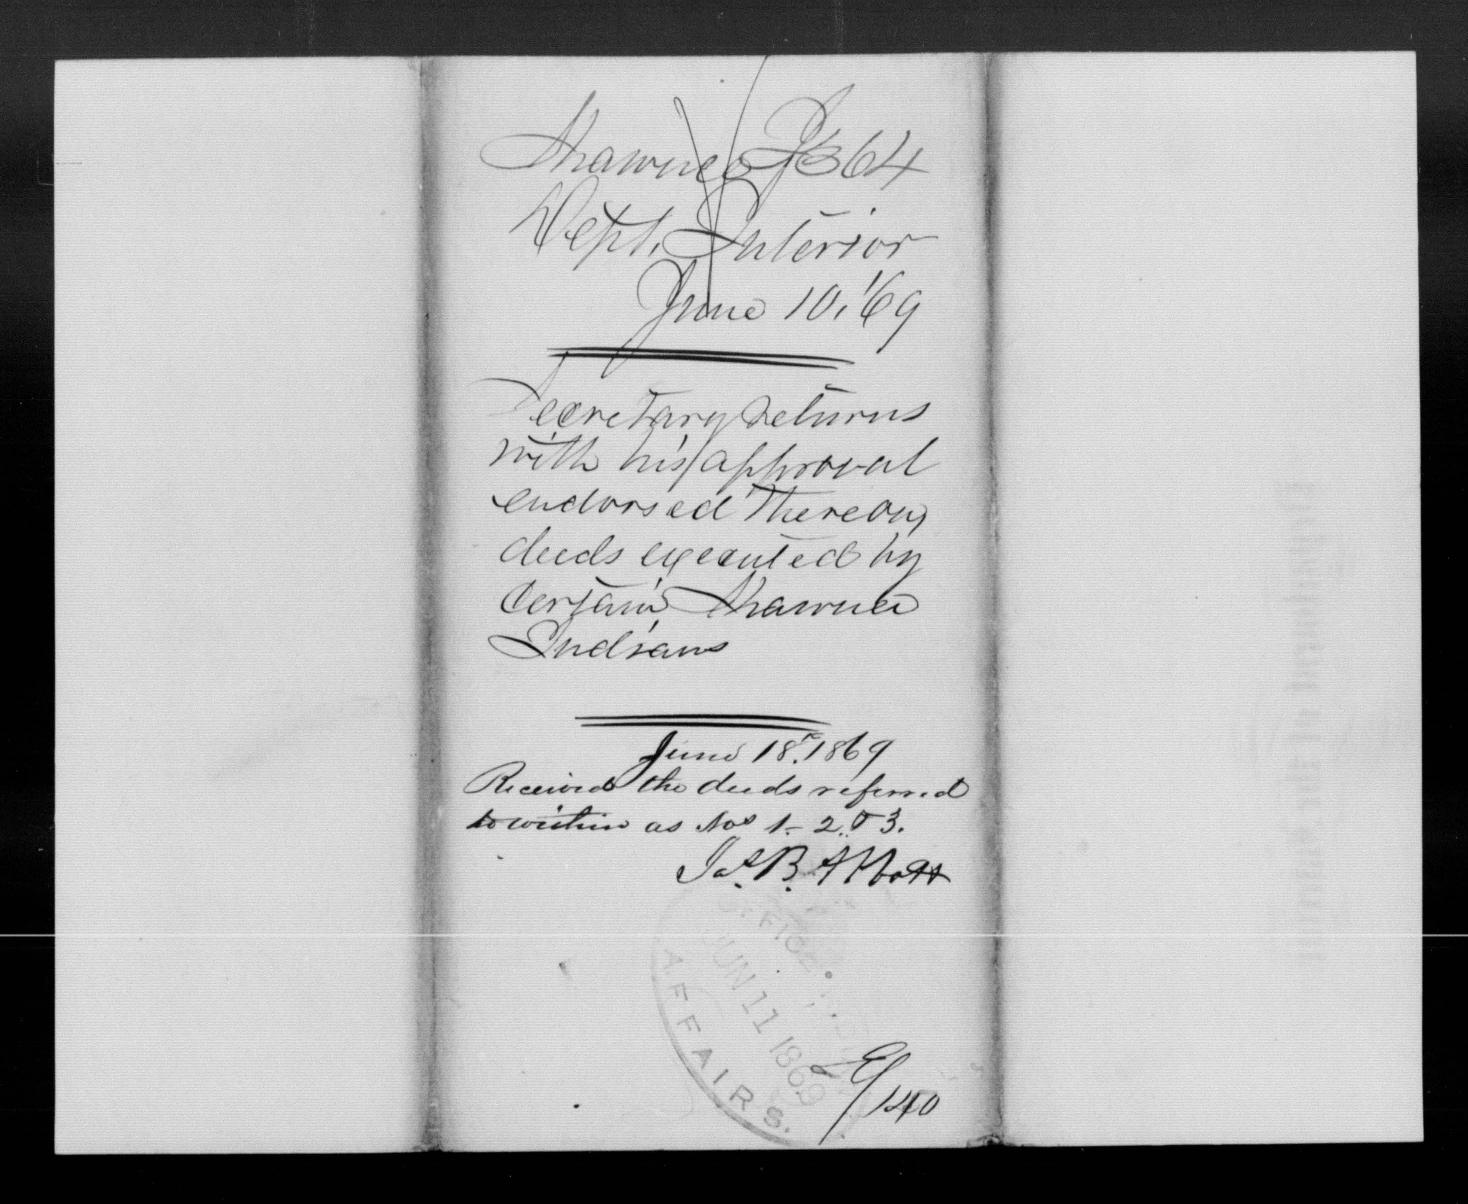 Shawnee I 364
Dept. Interior
June 10, '69
Secretary returns
with his approval
endorsed thereon,
deeds executed by
certain Shawnee
Indians
June 18. 1869
Received the deeds referred
to within as Nos 1 - 2. & 3.
Jas. B. Abbott
OFFICE
JUN 11 1869
AFFAIRS.
140